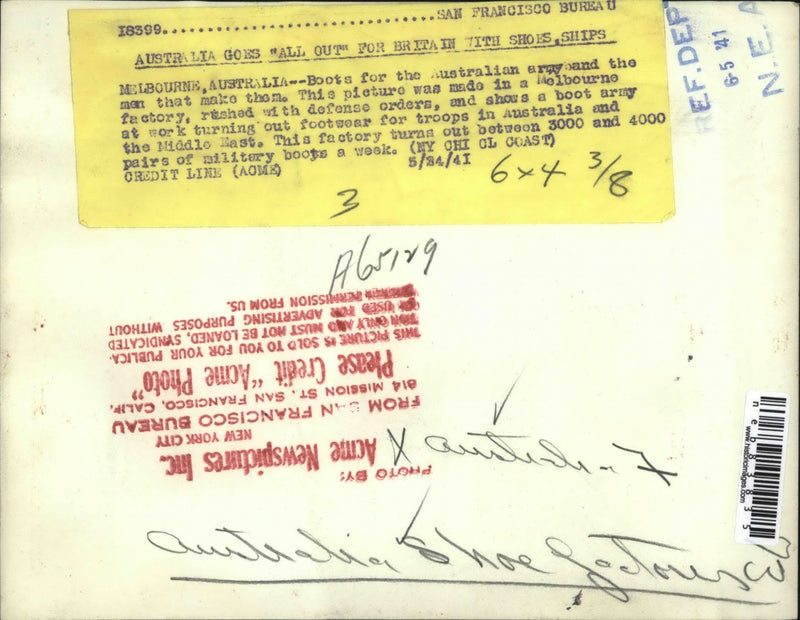 18399........................................SAN FRANCISCO BUREAU
AUSTRALIA GOES "ALL OUT" FOR BRITAIN WITH SHOES, SHIPS
MELBOURNE, AUSTRALIA--Boots for the Australian army and the
men that make them. This picture was made in a Melbourne
factory, rushed with defense orders, and shows a boot army
at work turning out footwear for troops in Australia and
the Middle East. This factory turns out between 3000 and 4000
pairs of military boots a week. (NY CHI CL COAST)
CREDIT LINE (ACME) 5/24/41
6x4 3/8
3
REF. DEP
6-5 41
N.E.A
A65129
PHOTO BY:
Acme Newspictures Inc.
NEW YORK CITY
FROM SAN FRANCISCO BUREAU
814 MISSION ST. SAN FRANCISCO, CALIF.
Please Credit "Acme Photo"
THIS PICTURE IS SOLD TO YOU FOR YOUR PUBLICA-
TION ONLY AND MUST NOT BE LOANED, SYNDICATED
OR USED FOR ADVERTISING PURPOSES WITHOUT
PERMISSION FROM US.
X Australia - F
Australia Shoe Factories
www.historicimages.com
neb83835